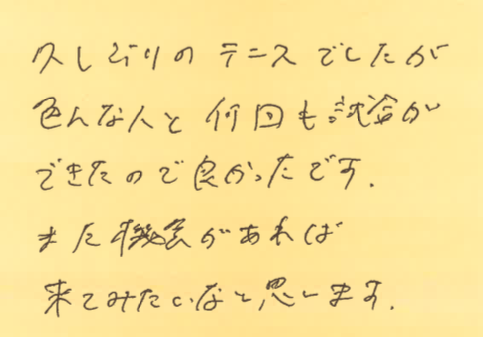 久しぶりのテニスでしたが
色んな人と何回も試合が
できたので良かったです.
また機会があれば
来てみたいなと思います.